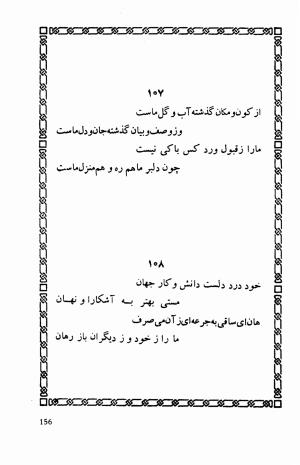 ۱۰۷
از کون و مکان گذشته آب و گل ماست
وز وصف و بیان گذشته جان و دل ماست
ما را ز قبول ورد کس باکی نیست
چون دلبر ما هم ره و هم منزل ماست
۱۰۸
خود درد دلست دانش و کار جهان
مستی بهتر به آشکارا و نهان
هان ای ساقی به جرعه‌ای ز آن می صرف
ما را ز خود و ز دیگران باز رهان
156